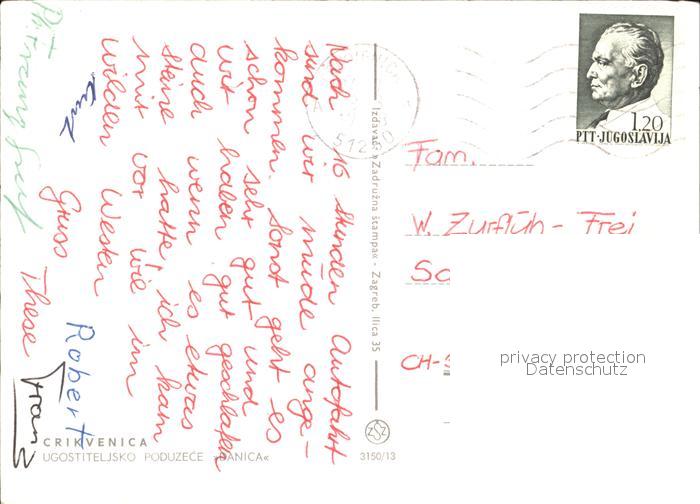 Nach 16 Stunden Autofahrt
sind wir müde ange-
kommen. Sonst geht es
schon sehr gut und
wir haben gut geschlafen
auch wenn es etwas
Steine hatte, ich kam
mir vor wie im
wilden Westen
Gruss Therese
Robert
Franz
CRIKVENICA
UGOSTITELJSKO PODUZEĆE »DANICA«
Izdavač: »Zadružna štampa« - Zagreb, Ilica 35
3150/13
ZŠZ
512
1.20
PTT-JUGOSLAVIJA
Fam.
W. Zurflüh - Frei
Sc
CH-
privacy protection
Datenschutz